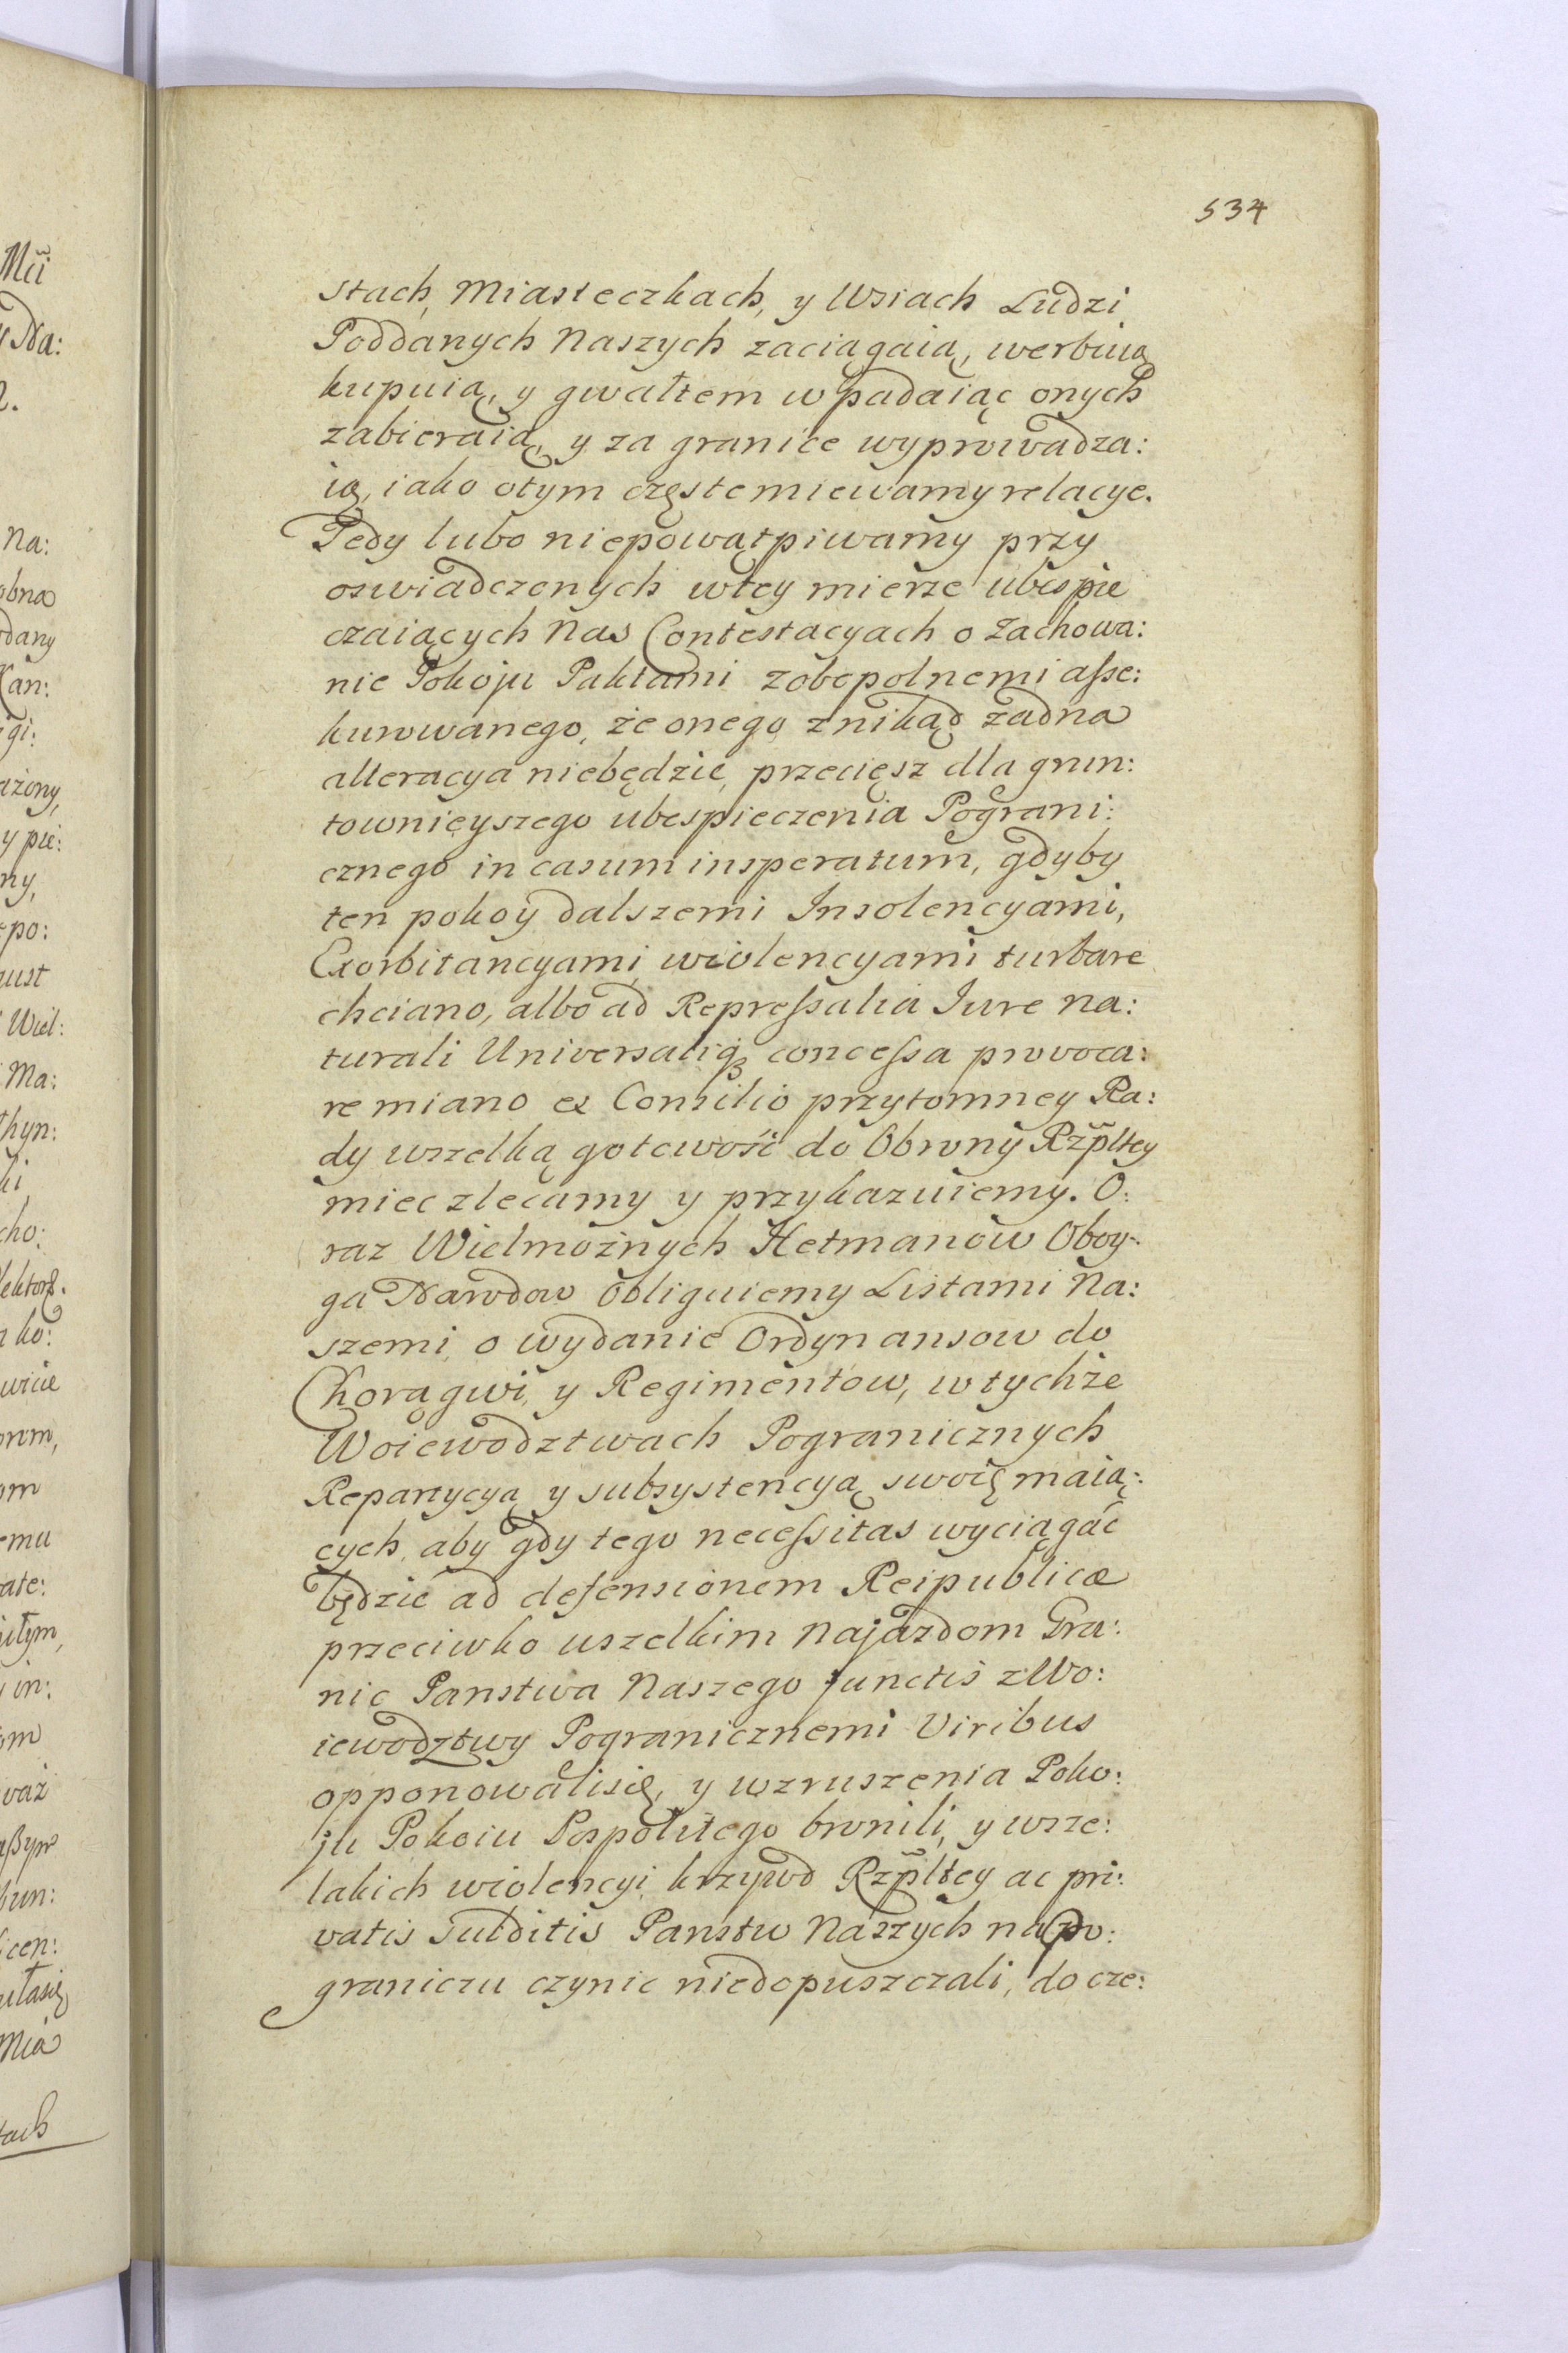 534
stach, Miasteczkach, y Wsiach Ludzi
Poddanych Naszych zaciągaią, werbuią
kupuią, y gwałtem wpadaiąc onych
zabieraią, y za granice wyprowadza:
ią, iako otym częste miewamy relacye.
Tedy lubo niepowątpiwamy przy
oswiadczonych wtey mierze ubespie
czaiących Nas Contestacyach o Zachowa:
nie Pokoju Paktami zobopolnemi asse:
kurowanego, że onego znikąd żadna
alteracya niebędzie, przecięsz dla grun:
townieyszego ubespieczenia Pograni:
cznego in casum insperatum, gdyby
ten pokoy dalszemi Insolencyami,
Exorbitancyami, wiolencyami turbare
chciano, albo ad Repressalia Iure na:
turali Universaliq concessa provoca:
re miano ex Consilio przytomney Ra:
dy wszelką gotowość do Obrony Rzpltey
miec zlecamy y przykazuiemy. O:
raz Wielmożnych Hetmanow Oboy:
ga Narodow Obliguiemy Listami Na:
szemi, o wydanie Ordynansow do
Chorągwi, y Regimentow, w tychże
Woiewodztwach Pogranicznych
Repartycyą y subsystencyą swoię maią:
cych, aby gdy tego necessitas wyciągać
będzie ad defensionem Reipublicæ
przeciwko wszelkim Najazdom Gra:
nic Panstwa Naszego junctis z Wo:
iewodztwy Pogranicznemi Viribus
opponowalisię, y wzruszenia Poko:
ju Pokoiu Pospolitego bronili, y wsze:
lakich wiolencyi, krzywd Rzpltey ac pri:
vatis subditis Panstw Naszych na po:
graniczu czynic niedopuszczali, do cze:
Mii
Na:
bna
dany
Kan:
gi:
ażony,
y pie:
ny,
po:
ust
Wiel:
Ma:
thyn:
ki
cho:
ko:
wicie
om
emu
ate:
in:
om
waż
kun:
icen:
Mia
tach